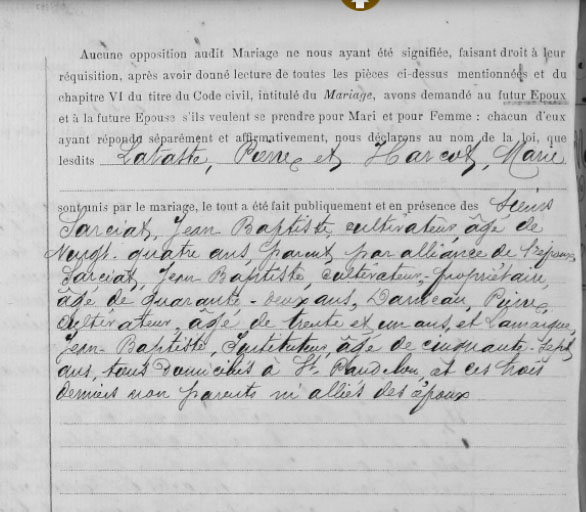 Aucune opposition audit Mariage ne nous ayant été signifiée, faisant droit à leur
réquisition, après avoir donné lecture de toutes les pièces ci-dessus mentionnées et du
chapitre VI du titre du Code civil, intitulé du Mariage, avons demandé au futur Epoux
et à la future Epouse s'ils veulent se prendre pour Mari et pour Femme : chacun d'eux
ayant répondu séparément et affirmativement, nous déclarons au nom de la loi, que
lesdits Lataste, Pierre et Harcot, Marie
sont unis par le mariage, le tout a été fait publiquement et en présence des Sieurs
Sarciat, Jean Baptiste, cultivateur, âgé de
vingt-quatre ans, parent par alliance de l'époux,
Sarciat, Jean Baptiste, cultivateur-propriétaire,
âgé de quarante-deux ans, Darueau, Pierre,
cultivateur, âgé de trente et un ans, et Lamaigue,
Jean-Baptiste, Instituteur, âgé de cinquante-sept
ans, tous domiciliés à St Pandelon, et ces trois
derniers non parents ni alliés des époux